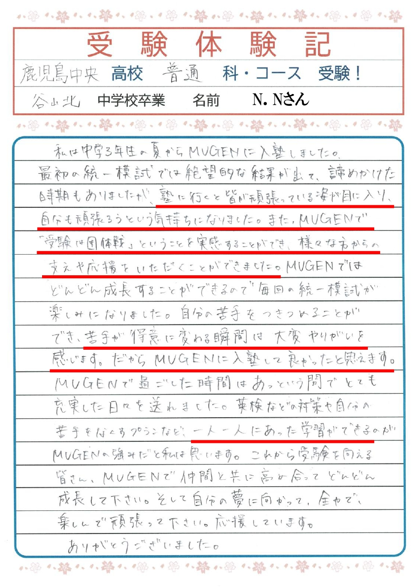 受験体験記
鹿児島中央 高校 普通 科・コース 受験！
谷山北 中学校卒業 名前 N.Nさん
私は中学3年生の夏からMUGENに入塾しました。
最初の統一模試では絶望的な結果が出て、諦めかけた
時期もありましたが、塾に行くと皆が頑張っている姿が目に入り、
自分も頑張ろうという気持ちになりました。また、MUGENで
「受験は団体戦」ということを実感することができ、様々な方からの
支えや応援をいただくことができました。MUGENでは
どんどん成長することができるので毎回の統一模試が
楽しみになりました。自分の苦手をつきつめることが
でき、苦手が得意に変わる瞬間は大変やりがいを
感じます。だからMUGENに入塾して良かったと思えます。
MUGENで過ごした時間はあっという間でとても
充実した日々を送れました。英検などの対策や自分の
苦手をなくすプランなど、一人一人にあった学習ができるのが
MUGENの強みだと私は思います。これから受験を向える
皆さん、MUGENで仲間と共に高め合ってどんどん
成長して下さい。そして自分の夢に向かって、全力で、
楽しんで頑張って下さい。応援しています。
ありがとうございました。